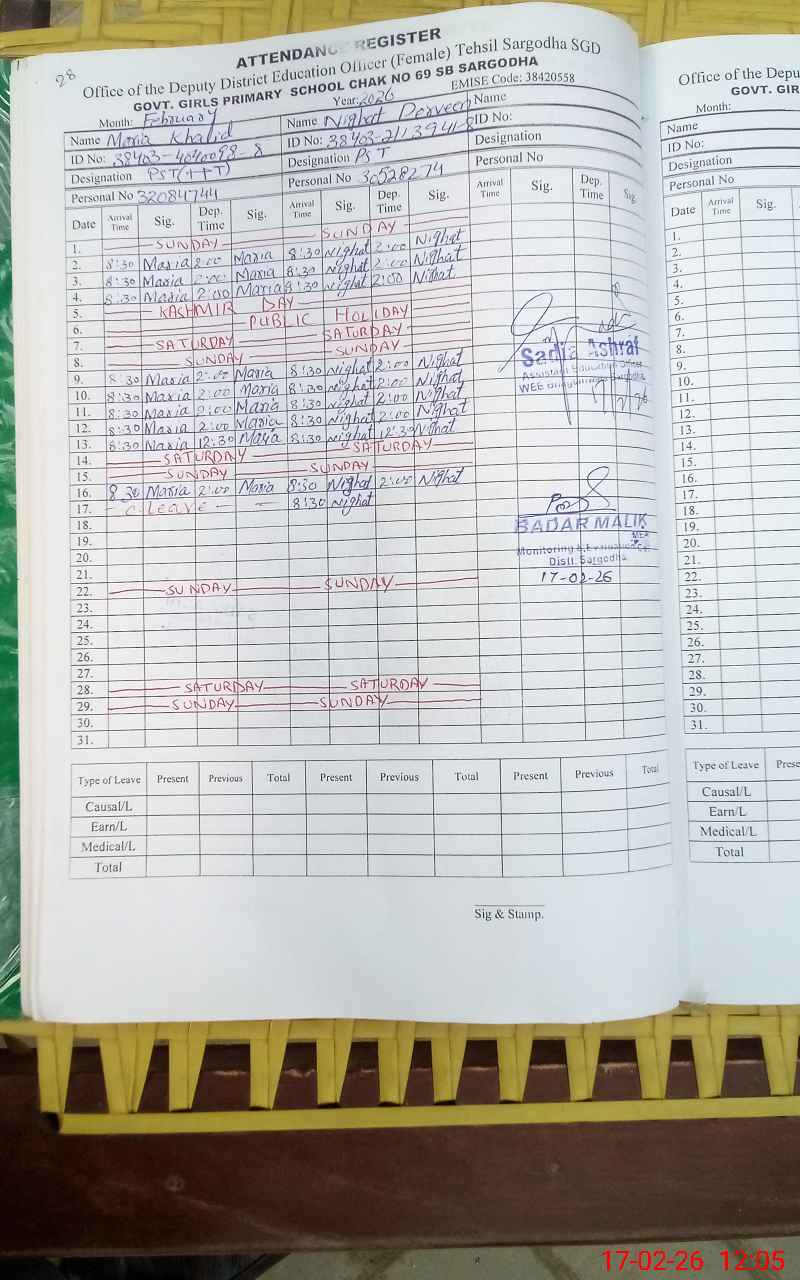 28
ATTENDANCE REGISTER
Office of the Deputy District Education Officer (Female) Tehsil Sargodha SGD
GOVT. GIRLS PRIMARY SCHOOL CHAK NO 69 SB SARGODHA
Month: February Year: 2026 EMISE Code: 38420558
Name Maria Khalid Name Nighat Perveen Name
ID No: 38403-4040098-8 ID No: 38403-2113941-8 ID No:
Designation PST(HT) Designation PST Designation
Personal No 32084744 Personal No 30528274 Personal No
Date Arrival Time Sig. Dep. Time Sig. Arrival Time Sig. Dep. Time Sig. Arrival Time Sig. Dep. Time Sig.
1. SUNDAY SUNDAY
2. 8:30 Maria 2:00 Maria 8:30 Nighat 2:00 Nighat
3. 8:30 Maria 2:00 Maria 8:30 Nighat 2:00 Nighat
4. 8:30 Maria 2:00 Maria 8:30 Nighat 2:00 Nighat
5. KASHMIR DAY
6. PUBLIC HOLIDAY
7. SATURDAY SATURDAY
8. SUNDAY SUNDAY
9. 8:30 Maria 2:00 Maria 8:30 Nighat 2:00 Nighat
10. 8:30 Maria 2:00 Maria 8:30 Nighat 2:00 Nighat
11. 8:30 Maria 2:00 Maria 8:30 Nighat 2:00 Nighat
12. 8:30 Maria 2:00 Maria 8:30 Nighat 2:00 Nighat
13. 8:30 Maria 12:30 Maria 8:30 Nighat 12:30 Nighat
14. SATURDAY SATURDAY
15. SUNDAY SUNDAY
16. 8:30 Maria 2:00 Maria 8:30 Nighat 2:00 Nighat
17. - C-LEAVE - - 8:30 Nighat
18.
19.
20.
21.
22. SUNDAY SUNDAY
23.
24.
25.
26.
27.
28. SATURDAY SATURDAY
29. SUNDAY SUNDAY
30.
31.
Sadia Ashraf
Assistant Education Officer
BADAR MALIK
MEA
Monitoring & Evaluation
Distt. Sargodha
17-02-26
Type of Leave Present Previous Total Present Previous Total Present Previous Total
Causal/L
Earn/L
Medical/L
Total
Sig & Stamp.
Office of the Depu
GOVT. GIR
Month:
Name
ID No:
Designation
Personal No
Date Arrival Time Sig.
1.
2.
3.
4.
5.
6.
7.
8.
9.
10.
11.
12.
13.
14.
15.
16.
17.
18.
19.
20.
21.
22.
23.
24.
25.
26.
27.
28.
29.
30.
31.
Type of Leave Prese
Causal/L
Earn/L
Medical/L
Total
17-02-26 12:05